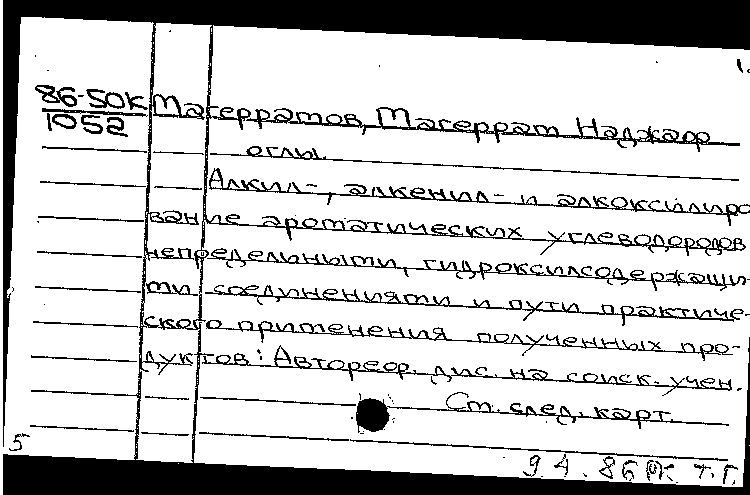 1.
86-50К Магеррамов, Магеррам Наджаф
1052
оглы.
Алкил-, алкенил- и алкоксилиро
вание ароматических углеводородов
непредельными, гидроксилсодержащи-
ми соединениями и пути практиче-
ского применения полученных про-
дуктов: Автореф. дис. на соиск. учен.
См. след. карт.
5
9 4. 86 РК Т.Г.